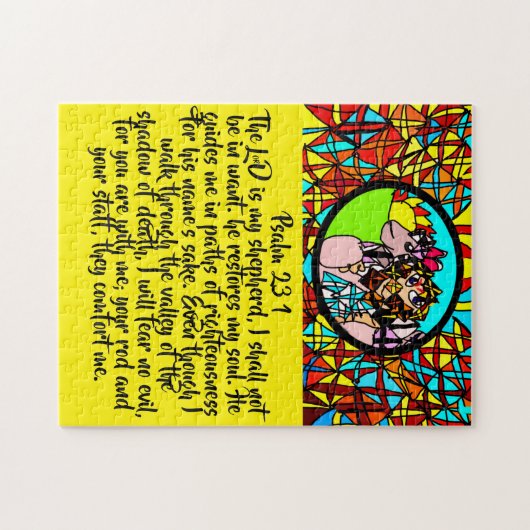 Psalm 23 1
The LORD is my shepherd, I shall not
be in want. he restores my soul. He
guides me in paths of righteousness
for his name's sake. Even though I
walk through the valley of the
shadow of death, I will fear no evil,
for you are with me; your rod and
your staff, they comfort me.